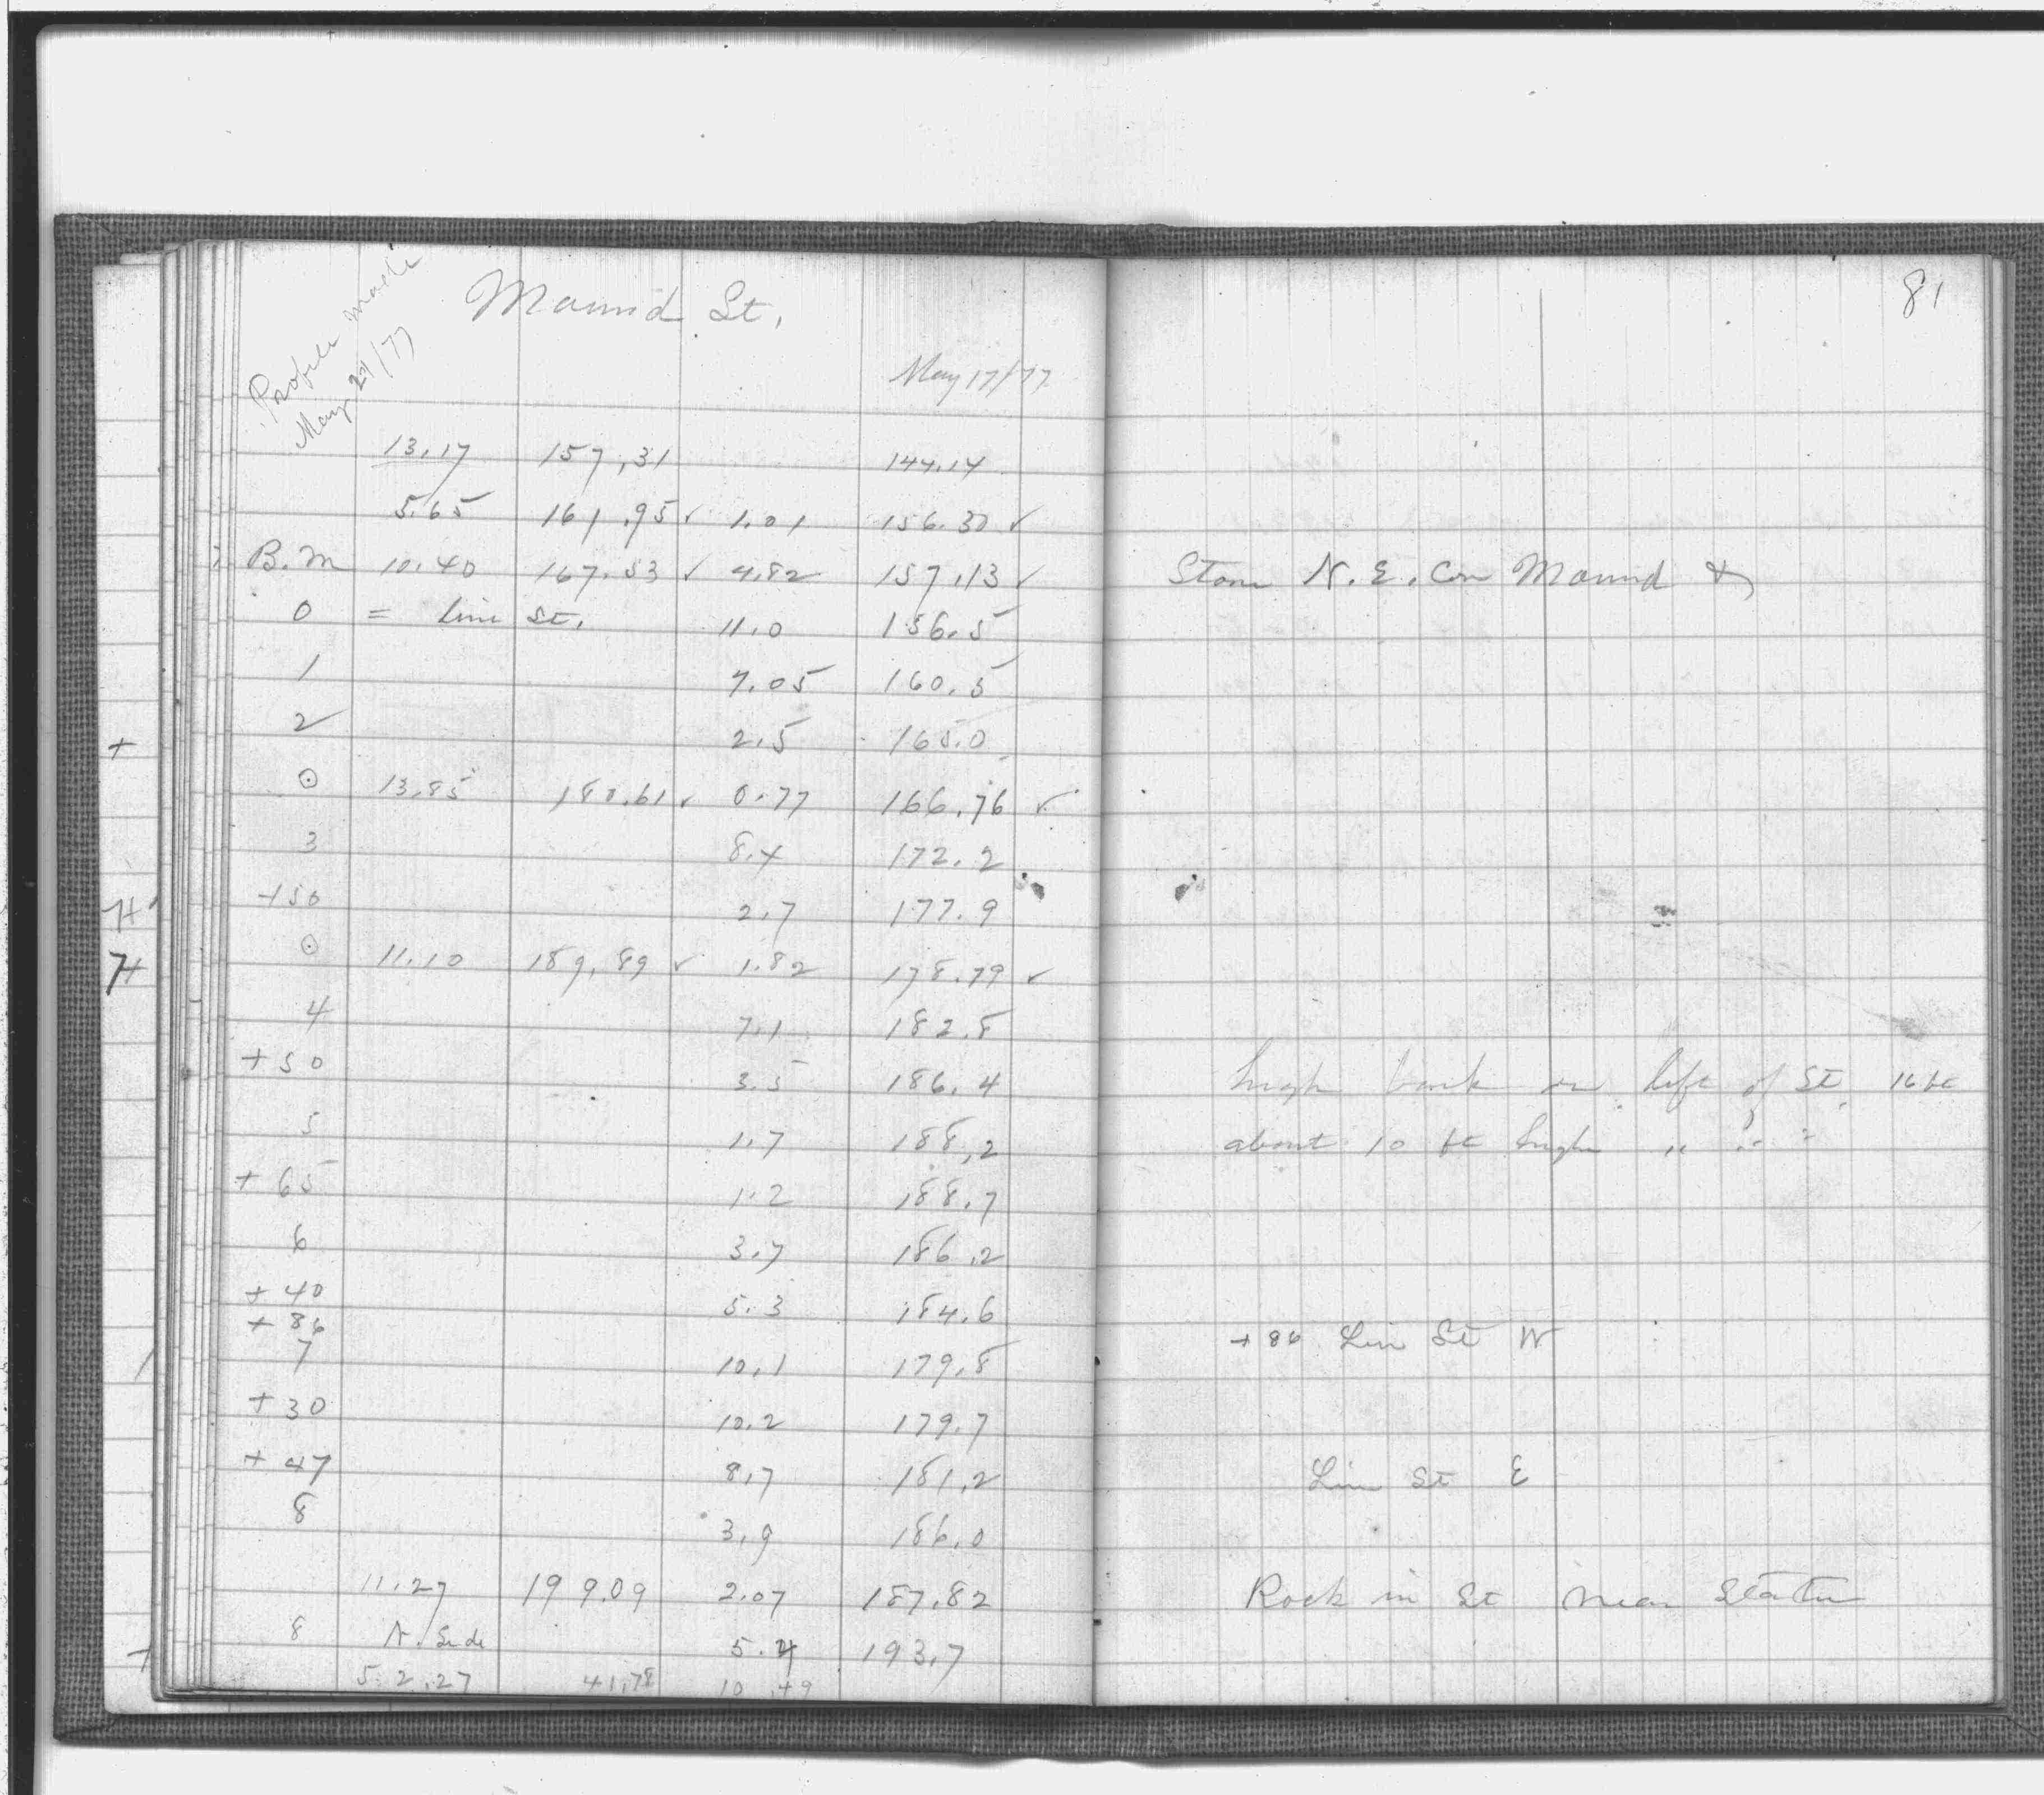 81
Profile made
May 21/77
Maund St.
May 17/77
13.17 157.31 144.14
5.65 161.95 ✓ 1.01 156.30 ✓
B.M 10.40 167.53 ✓ 4.82 157.13 ✓ Stone N.E. Cor Maund &
0 = Line St. 11.0 156.5
1 7.05 160.5
2 2.5 165.0
⊙ 13.85 180.61 ✓ 0.77 166.76 ✓
3 8.4 172.2
+50 2.7 177.9
⊙ 11.10 189.89 ✓ 1.82 178.79 ✓
4 7.1 182.8
+50 3.5 186.4 high bank on left of St. 16 ft
5 1.7 188.2 about 10 ft high " " "
+65 1.2 188.7
6 3.7 186.2
+40 5.3 184.6
+86 +86 Lin St W
7 10.1 179.8
+30 10.2 179.7
+47 8.7 181.2 Lin St E
8 3.9 186.0
11.27 199.09 2.07 187.82 Rock in St near Statn
8 N. Side 5.4 193.7
5 2.27 41.78 10.49